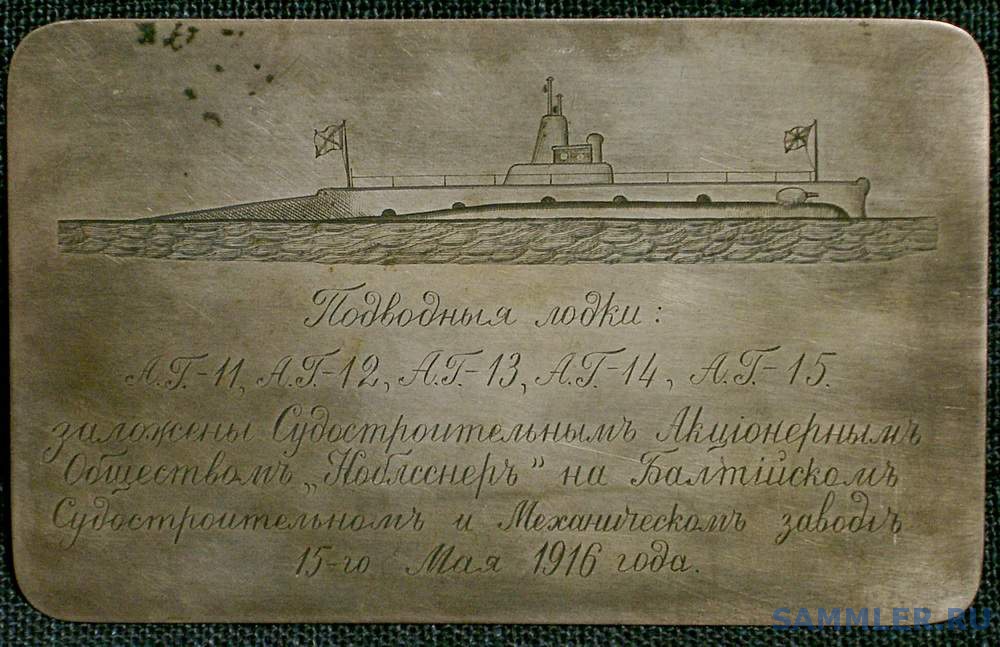 Подводныя лодки:
А.Г.-11, А.Г.-12, А.Г.-13, А.Г.-14, А.Г.-15.
заложены Судостроительнымъ Акціонернымъ
Обществомъ „Ноблесснеръ" на Балтійскомъ
Судостроительномъ и Механическомъ заводѣ
15-го Мая 1916 года.
SAMMLER.RU